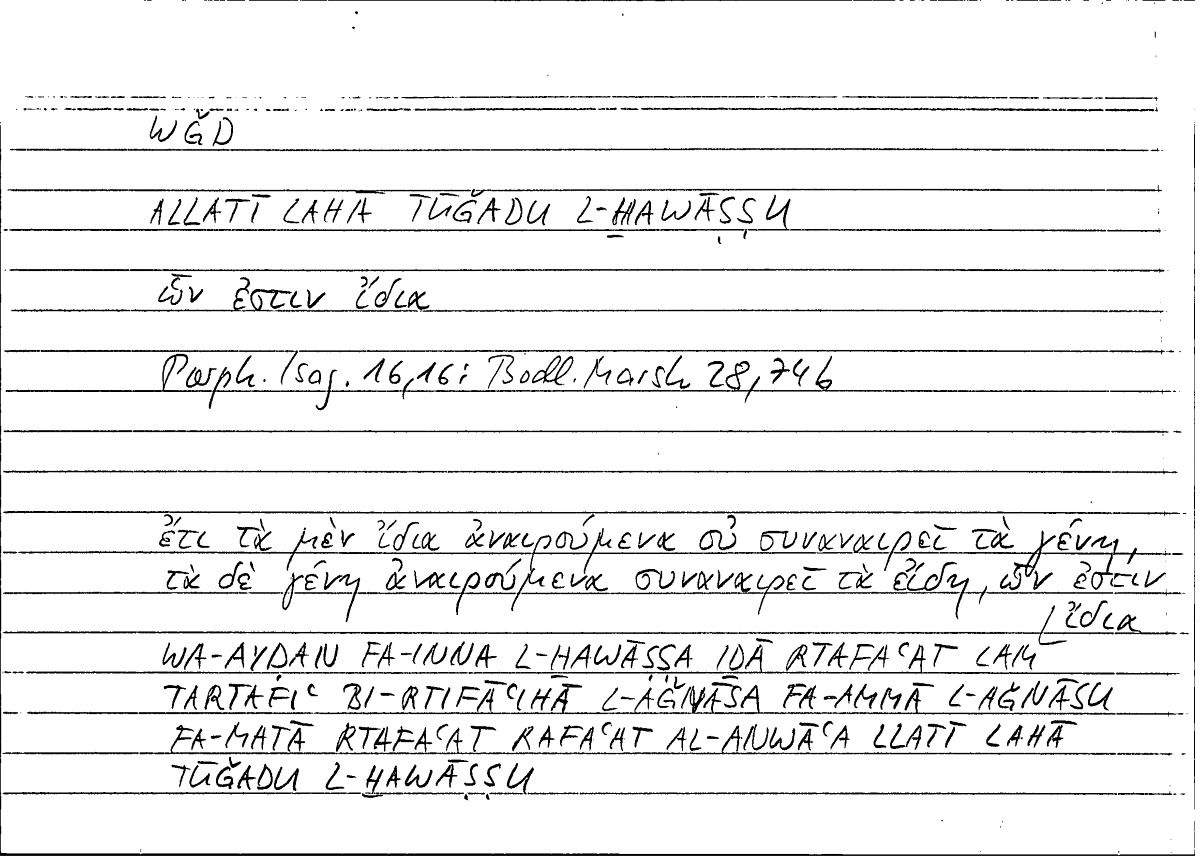 WǦD
ALLATĪ LAHĀ TŪǦADU L-ḪAWĀṢṢU
ὧν ἐστιν ἴδια
Porph. Isag. 16,16: Bodl. Marsh 28,74b
ἔτι τὰ μὲν ἴδια ἀναιρούμενα οὐ συναναιρεῖ τὰ γένη,
τὰ δὲ γένη ἀναιρούμενα συναναιρεῖ τὰ εἴδη, ὧν ἐστιν
ἴδια
WA-AYḌAN FA-INNA L-ḪAWĀṢṢA IḎĀ RTAFAʿAT LAM
TARTAFIʿ BI-RTIFĀʿIHĀ L-AǦNĀSA FA-AMMĀ L-AǦNĀSU
FA-MATĀ RTAFAʿAT RAFAʿAT AL-ANWĀʿA LLATĪ LAHĀ
TŪǦADU L-ḪAWĀṢṢU